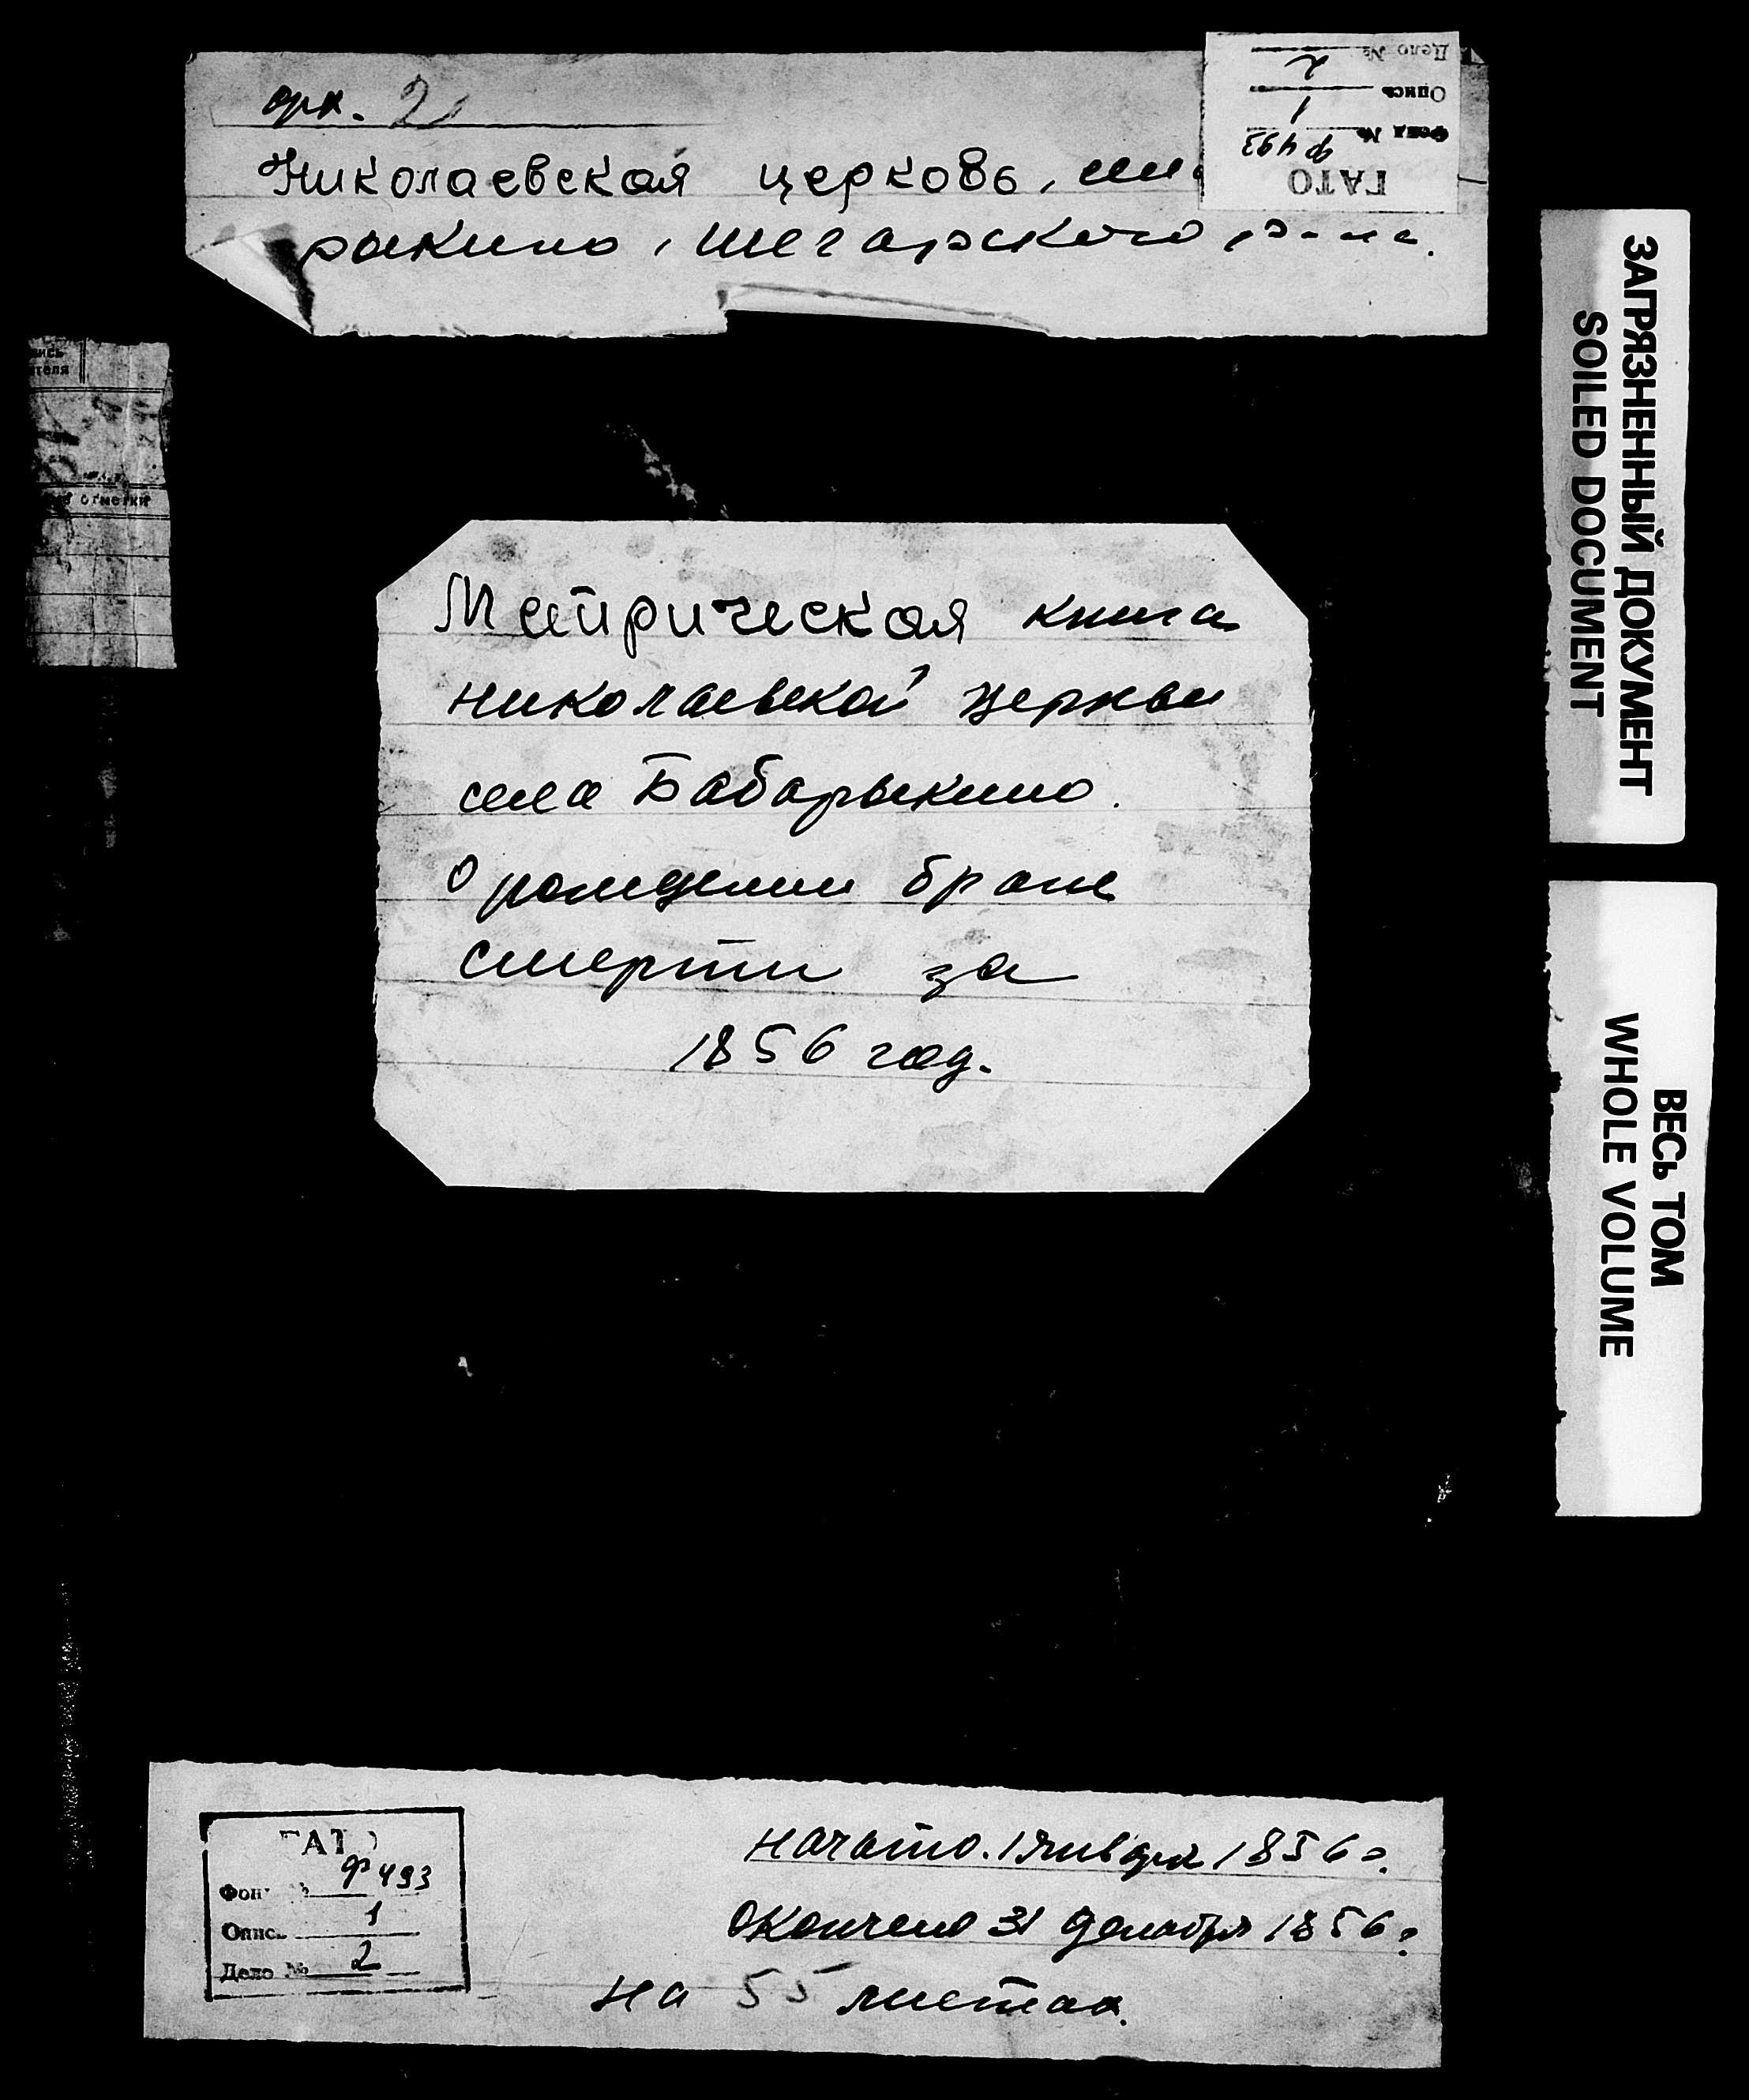 арх. 2
Николаевская церковь,
рыкино, Шегарского р-на.
ГАТО
Фонд № ф493
Опись 1
Дело № 2
отметки
Метрическая книга
николаевской церкви
села Бабарыкино.
о рождении браке
смерти за
1856 год.
ЗАГРЯЗНЕННЫЙ ДОКУМЕНТ
SOILED DOCUMENT
ВЕСЬ ТОМ
WHOLE VOLUME
ГАТО
Фонд № ф493
Опись 1
Дело № 2
начато. 1 января 1856 г.
окончено 31 декабря 1856 г.
на 55 листах.